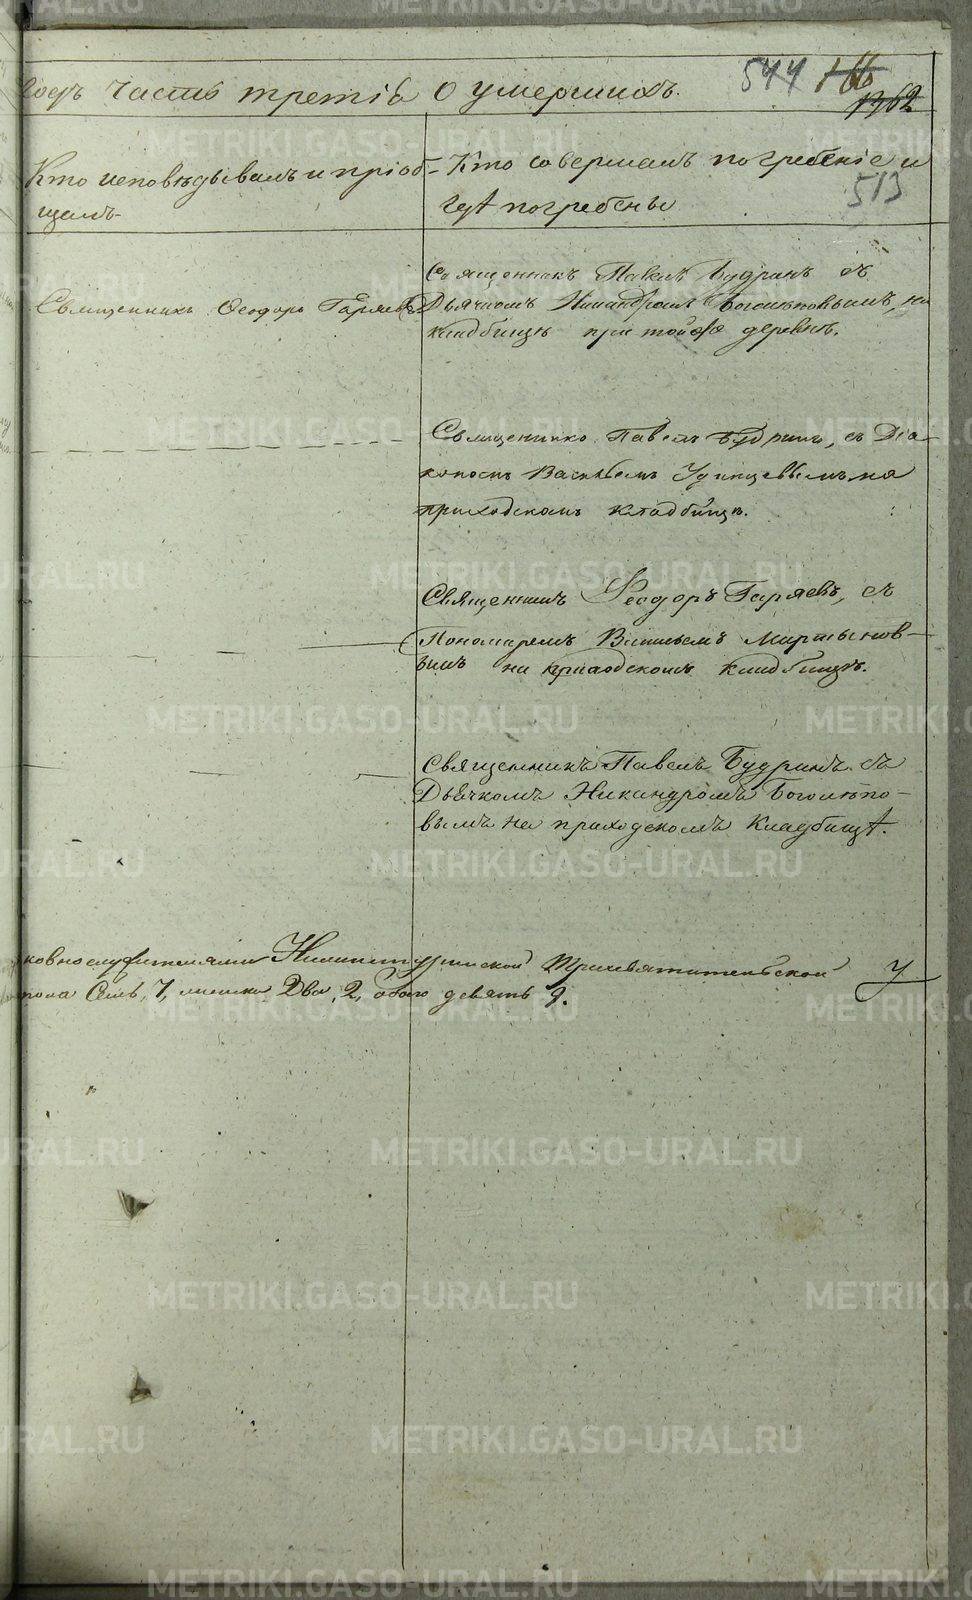 годъ часть третія о умершихъ. 544 166
1362
Кто исповѣдывалъ и пріоб-
щалъ
Кто совершалъ погребеніе и
гдѣ погребены
513
Священникъ Ѳеодоръ Гаряевъ
Священникъ Павелъ Будринъ съ
Дьячкомъ Никандромъ Боголѣповымъ, на
кладбищѣ при той же деревнѣ.
Священникъ Павелъ Будринъ, съ Діа-
кономъ Васильемъ Удинцевымъ на
приходскомъ кладбищѣ.
Священникъ Ѳеодоръ Гаряевъ, съ
Пономаремъ Васильемъ Мартынов-
вымъ на приходскомъ кладбищѣ.
Священникъ Павелъ Будринъ съ
Дьячкомъ Никандромъ Боголѣпо-
вымъ на приходскомъ кладбищѣ.
ковнослужителями Нижнетуринской Трехсвятительской
пола Семь, 7, женска Два, 2, обоего девять 9.
METRIKI.GASO-URAL.RU